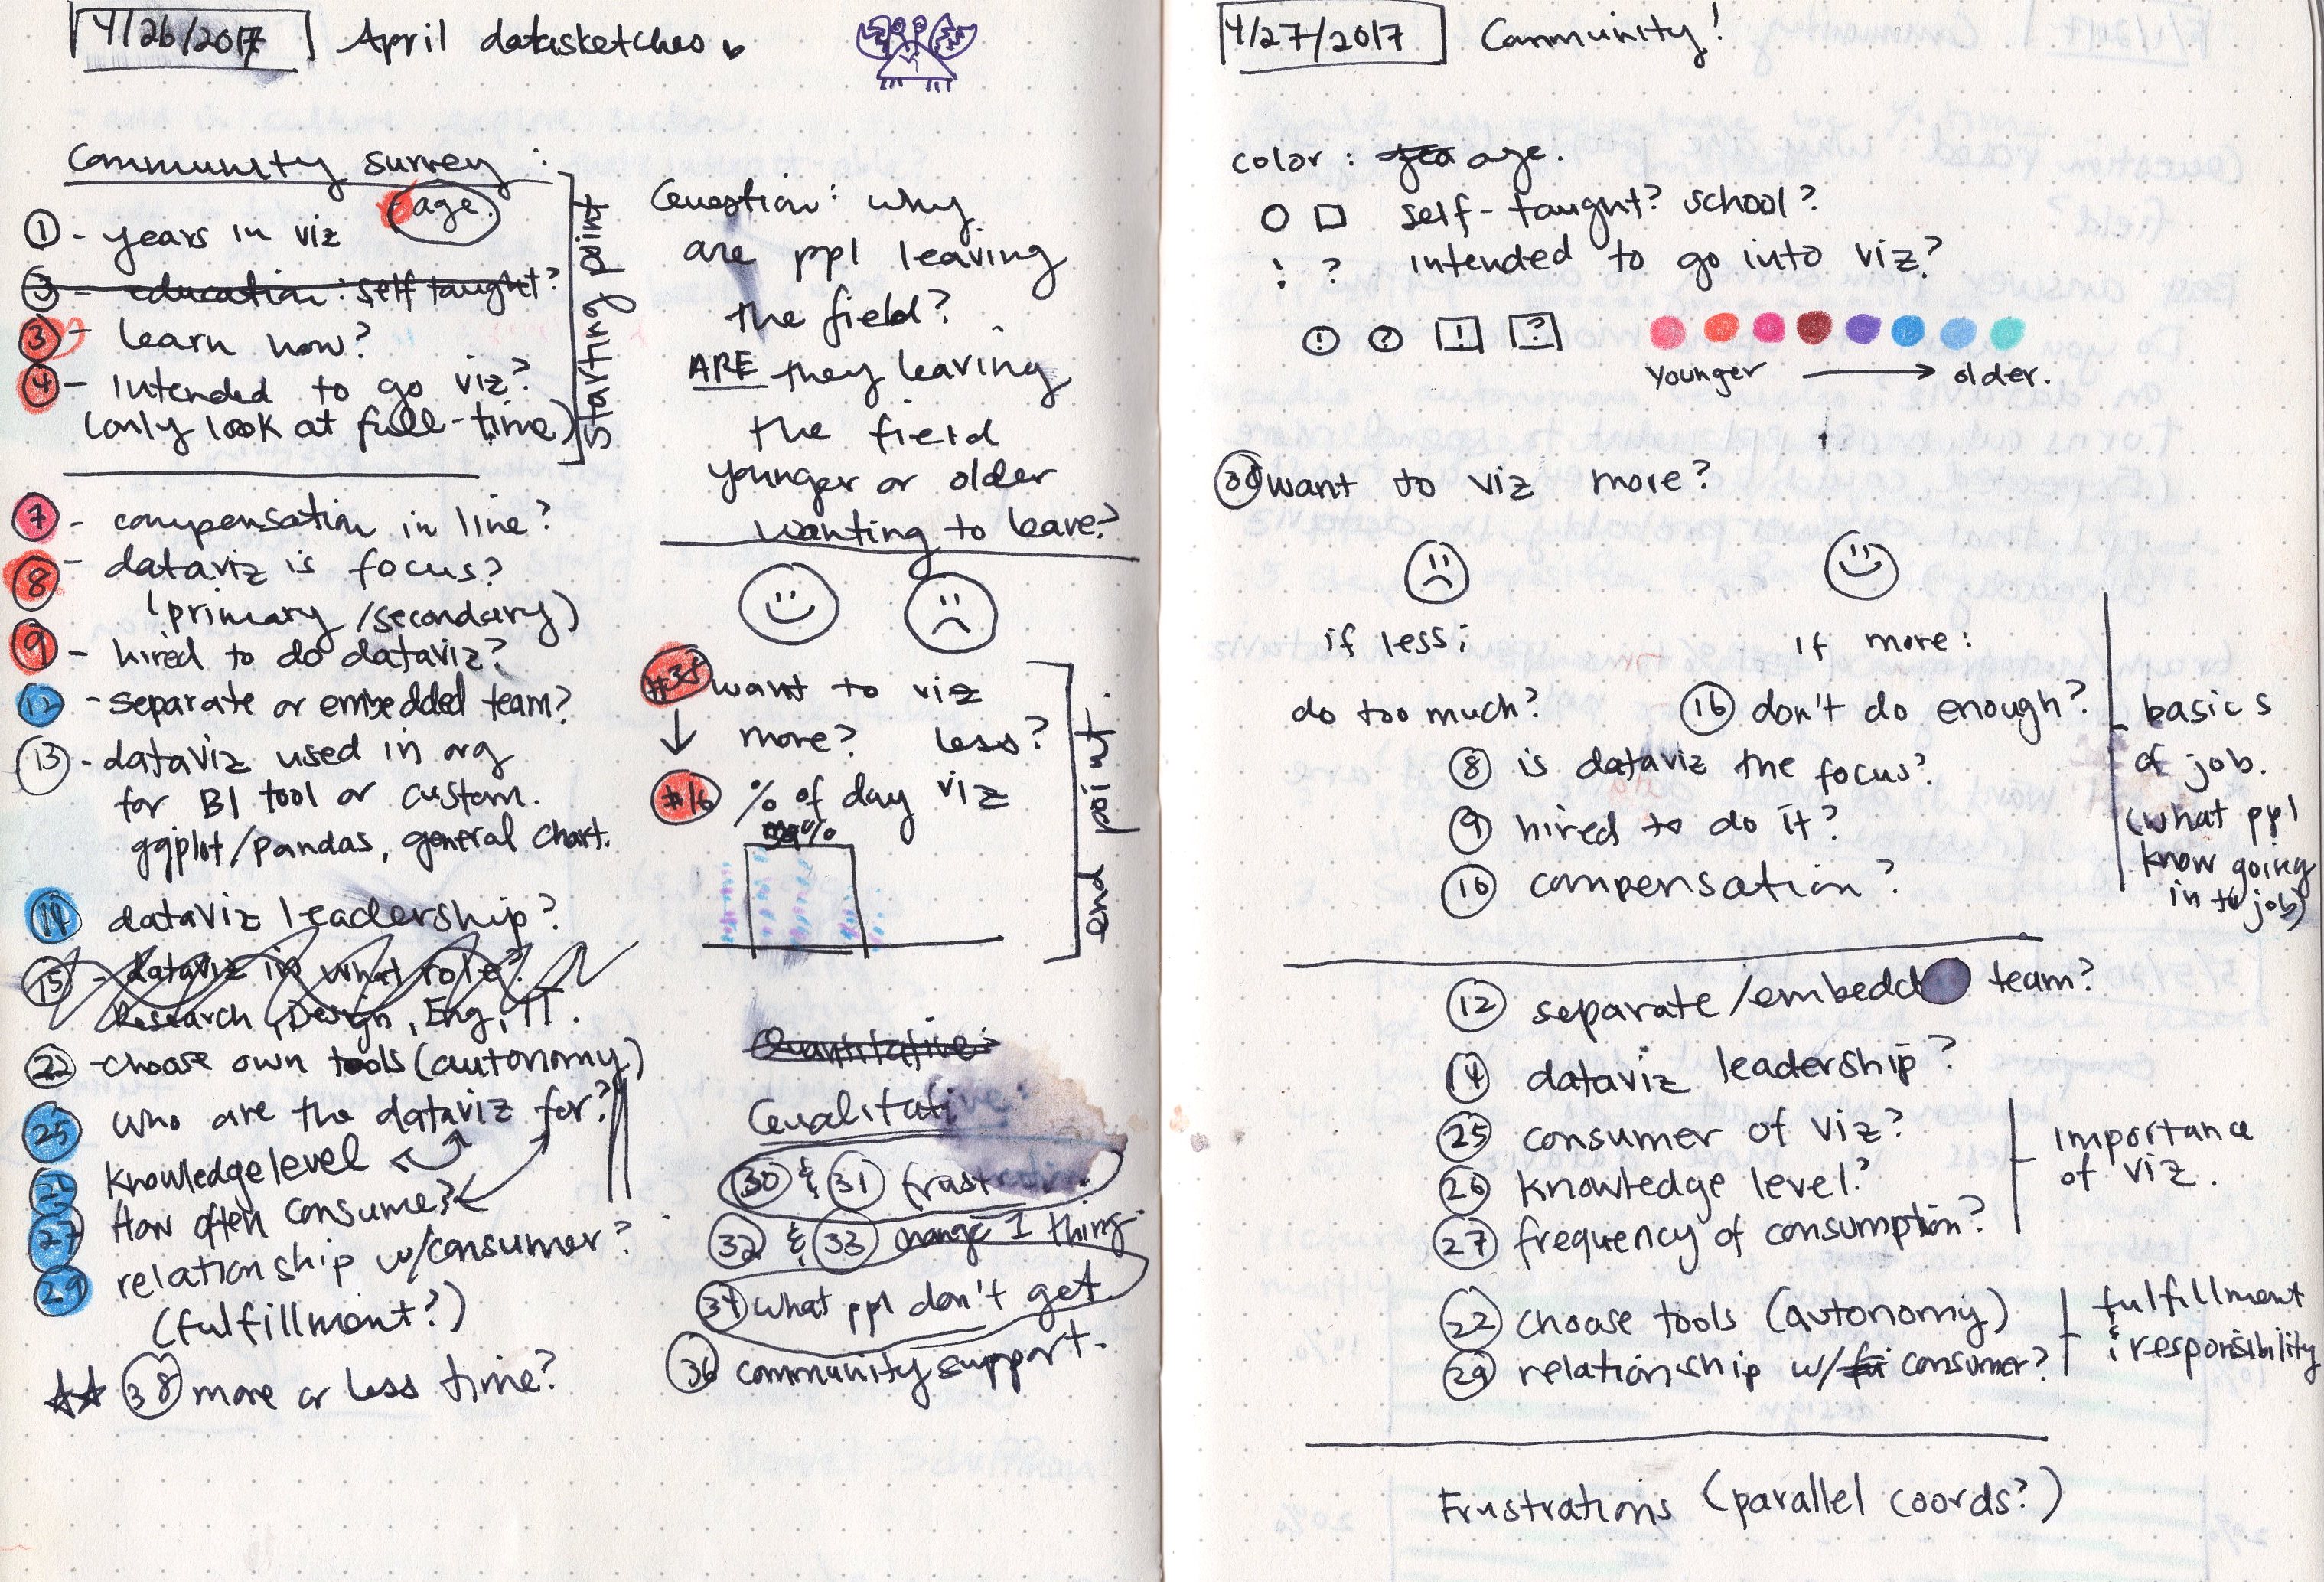 4/26/2017 April datasketches
Community survey :
age
① - years in viz
③ - education: self taught?
③ - learn how?
④ - intended to go viz?
(only look at full-time)
starting point
⑦ - compensation in line?
⑧ - dataviz is focus?
(primary/secondary)
⑨ - hired to do dataviz?
⑫ - separate or embedded team?
⑬ - dataviz used in org
for BI tool or custom.
ggplot/pandas, general chart.
⑭ dataviz leadership?
⑮ - dataviz in what role?
Research, Design, Eng, IT.
㉒ - choose own tools (autonomy)
㉕ who are the dataviz for?
㉖ knowledge level
㉗ How often consume?
㉙ relationship w/consumer?
(fulfillment?)
㊳ more or less time?
Question: why
are ppl leaving
the field?
ARE they leaving
the field
younger or older
wanting to leave?
want to viz
more? less?
#16 % of day viz
%
end point.
Quantitative:
Qualitative:
㉚ & ㉛ frustration.
㉜ & ㉝ change 1 thing
㉞ what ppl don't get
㊱ community support.
4/27/2017 Community!
color : age.
○ □ self-taught? school?
! ? intended to go into viz?
! ? ! ?
younger → older.
want to viz more?
if less; if more:
do too much? ⑯ don't do enough?
⑧ is dataviz the focus?
⑨ hired to do it?
⑩ compensation?
basics
of job.
(what ppl
know going
in to job)
⑫ separate/embedd team?
⑭ dataviz leadership?
㉕ consumer of viz?
㉖ knowledge level?
㉗ frequency of consumption?
importance
of viz.
㉒ choose tools (autonomy)
㉙ relationship w/ consumer?
fulfillment
& responsibility
Frustrations (parallel coords?)